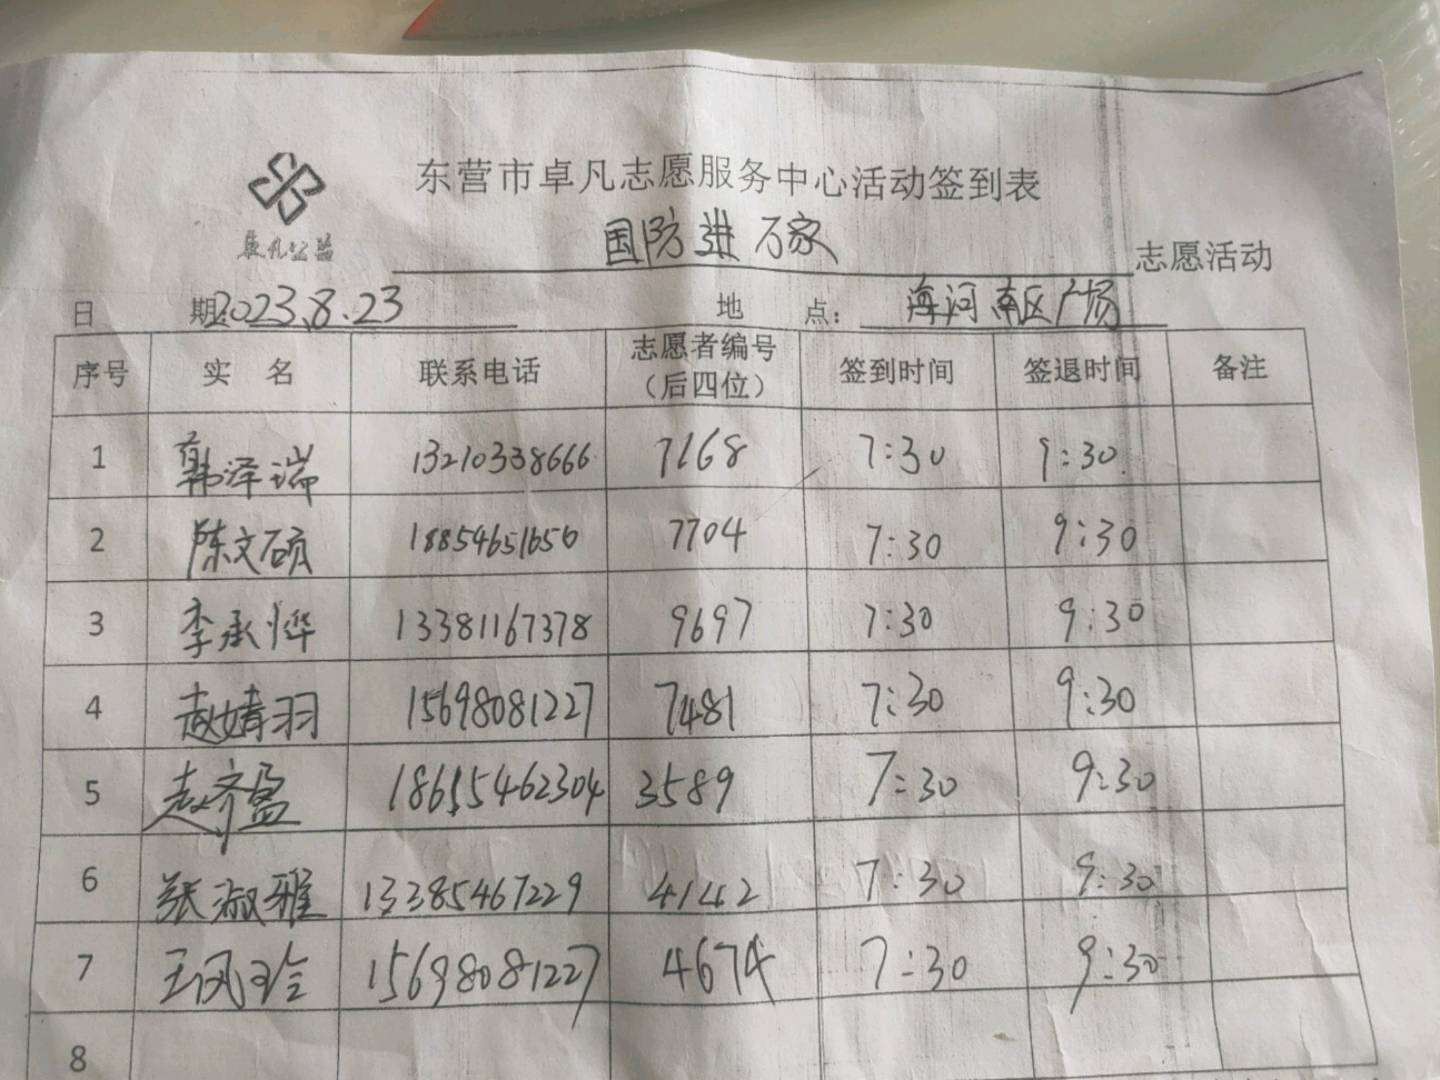 东营市卓凡志愿服务中心活动签到表
卓凡公益
国防进万家 志愿活动
日 期:2023.8.23 地 点: 海河南区广场
序号 实 名 联系电话 志愿者编号(后四位) 签到时间 签退时间 备注
1 韩泽瑞 13210338666 7168 7:30 9:30
2 陈文硕 18854651656 7704 7:30 9:30
3 李承烨 13381167378 9697 7:30 9:30
4 赵婧羽 15698081227 7481 7:30 9:30
5 赵齐盈 18615462304 3589 7:30 9:30
6 张淑雅 13385467229 4142 7:30 9:30
7 王凤玲 15698081227 4674 7:30 9:30
8